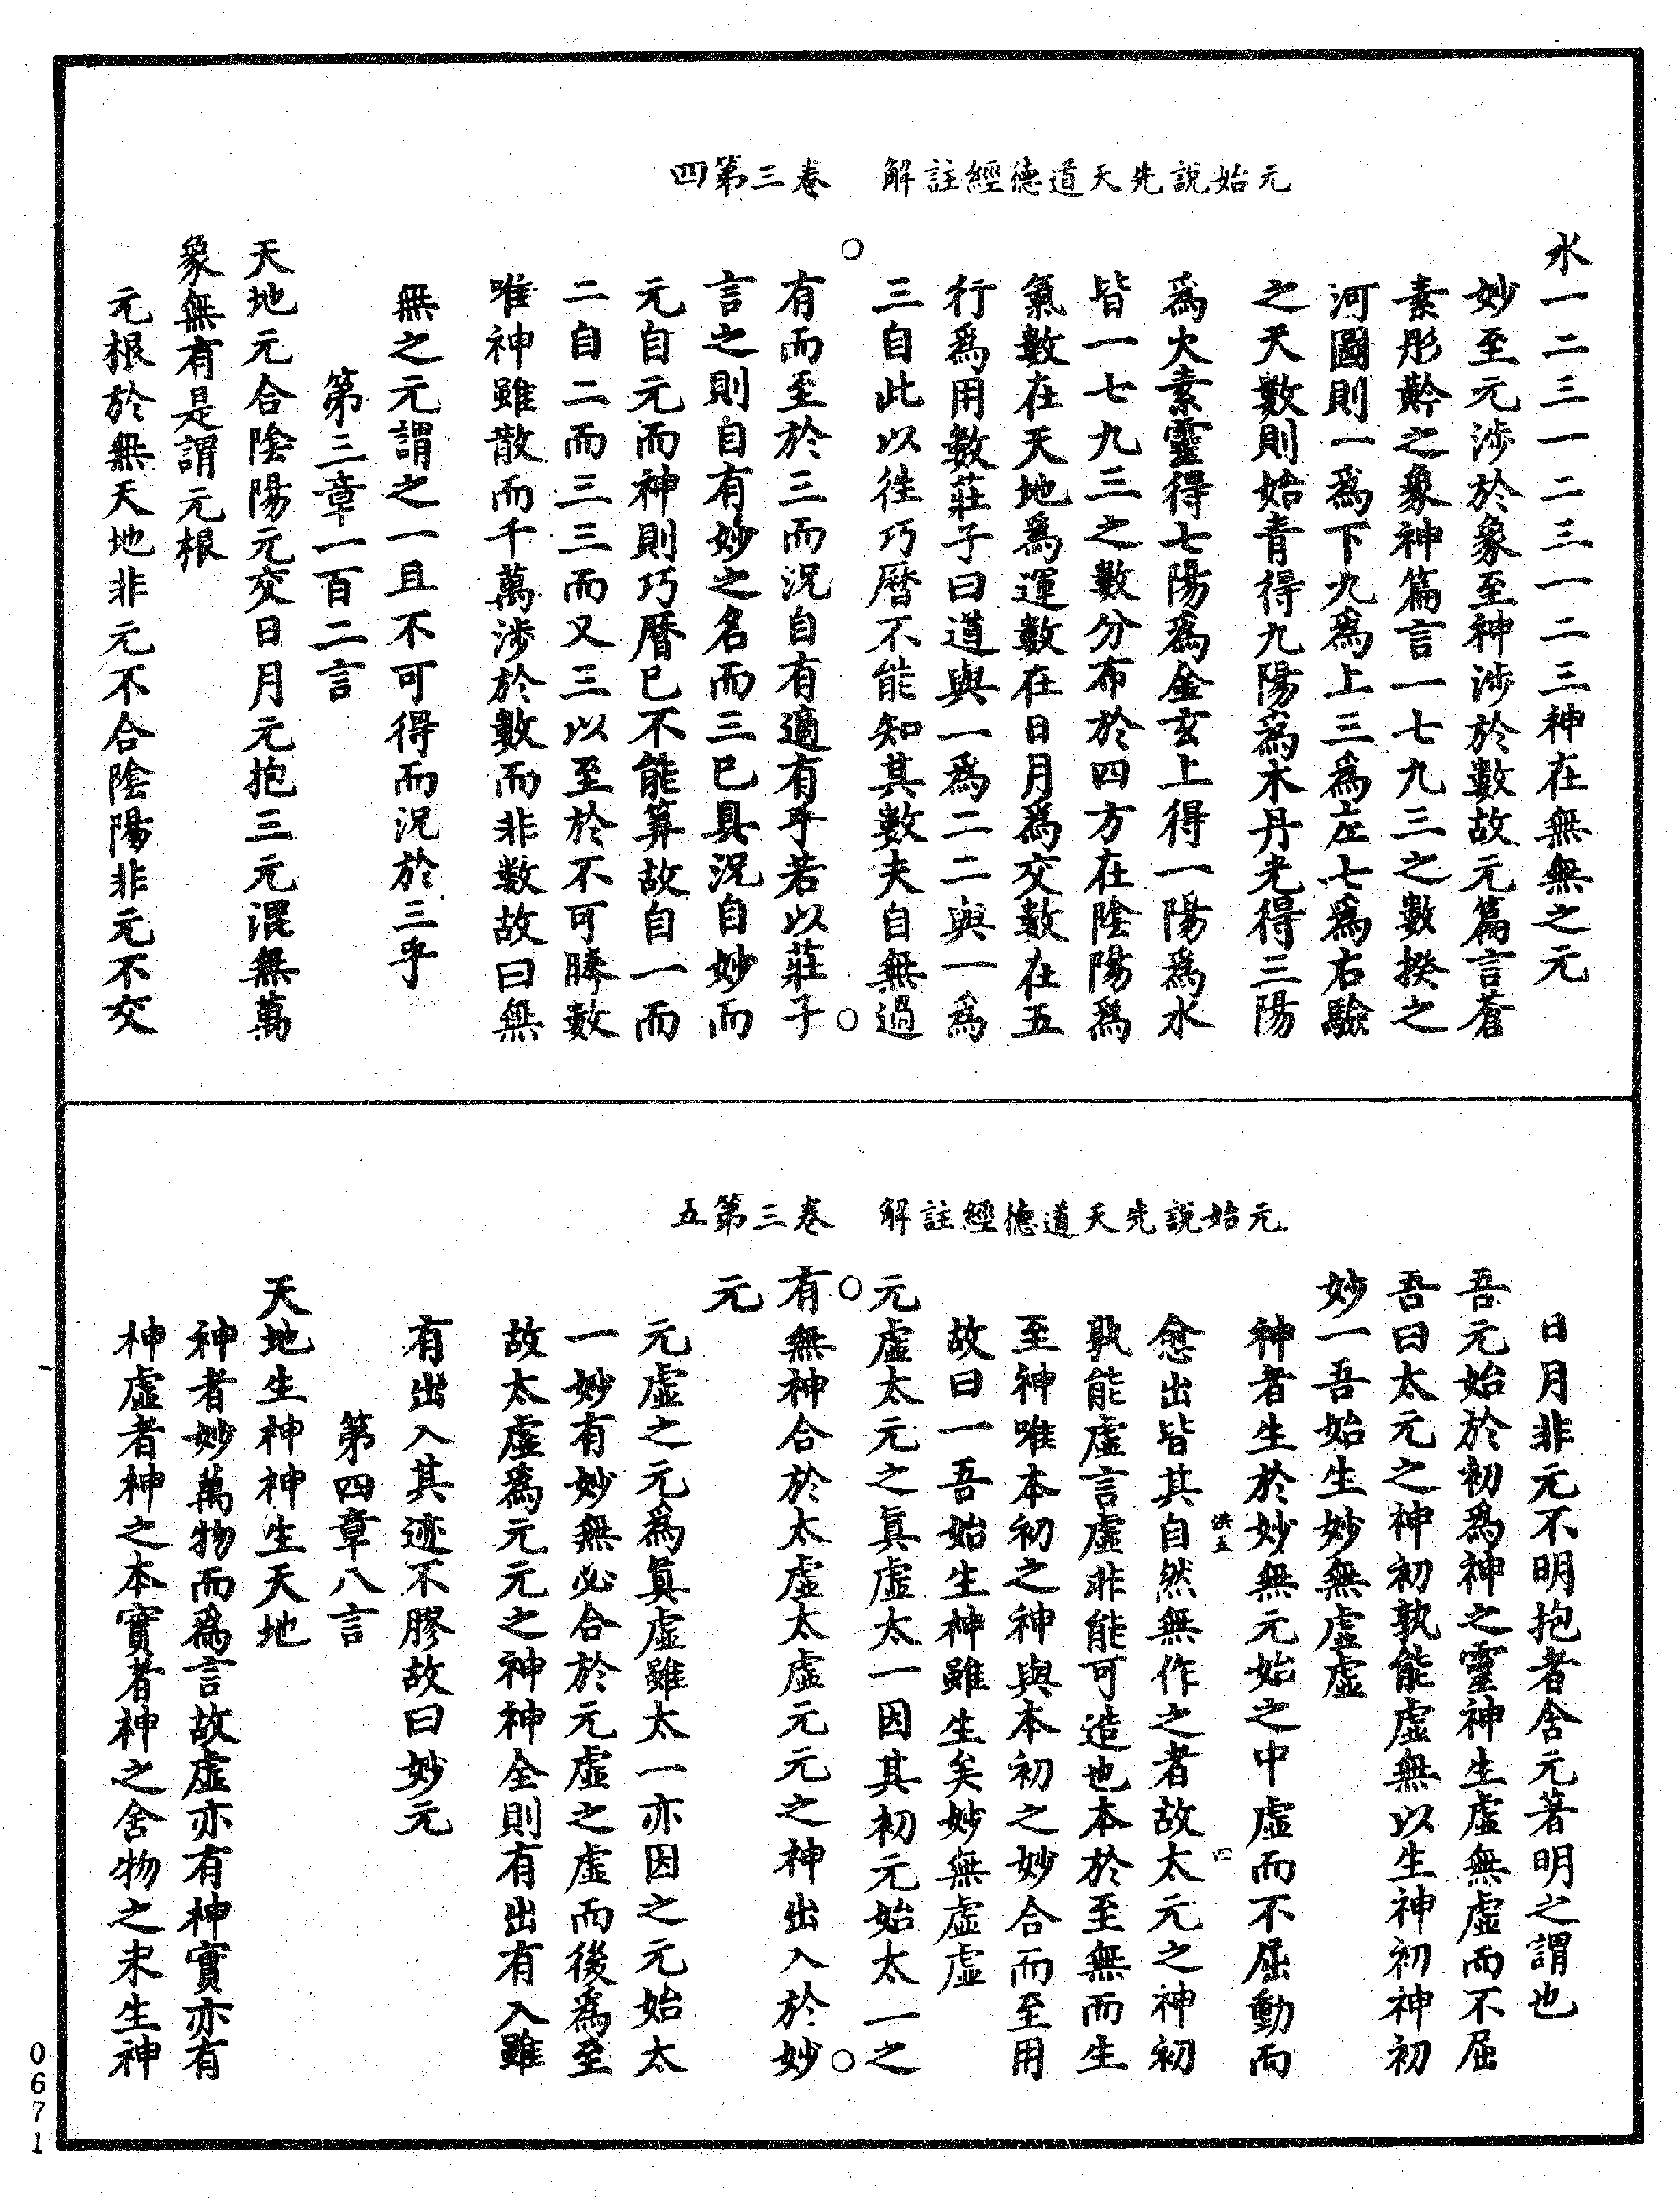 元始說先天道德經註解　卷三第四
水一二三一二三一二三神在無無之元
妙至元涉於象至神涉於數故元篇言蒼
素彤黅之象神篇言一七九三之數揆之
河圖則一爲下九爲上三爲左七爲右驗
之天數則始青得九陽爲木丹光得三陽
爲火素靈得七陽爲金玄上得一陽爲水
皆一七九三之數分布於四方在陰陽爲
氣數在天地爲運數在日月爲交數在五
行爲用數莊子曰道與一爲二二與一爲
三自此以往巧曆不能知其數夫自無過
有而至於三而況自有適有乎若以莊子
言之則自有妙之名而三已具況自妙而
元自元而神則巧曆已不能算故自一而
二自二而三三而又三以至於不可勝數
唯神雖散而千萬涉於數而非數故曰無
無之元謂之一且不可得而況於三乎
第三章一百二言
天地元合陰陽元交日月元抱三元混無萬
象無有是謂元根
元根於無天地非元不合陰陽非元不交
元始說先天道德經註解　卷三第五
日月非元不明抱者含元著明之謂也
吾元始於初爲神之靈神生虛無虛而不屈
吾曰太元之神初孰能虛無以生神初神初
妙一吾始生妙無虛虛
神者生於妙無元始之中虛而不屈動而
愈出皆其自然無作之者故太元之神初
孰能虛言虛非能可造也本於至無而生
至神唯本初之神與本初之妙合而至用
故曰一吾始生神雖生矣妙無虛虛
元虛太元之眞虛太一因其初元始太一之
有無神合於太虛太虛元元之神出入於妙
元
元虛之元爲眞虛雖太一亦因之元始太
一妙有妙無必合於元虛之虛而後爲至
故太虛爲元元之神神全則有出有入雖
有出入其迹不膠故曰妙元
第四章八言
天地生神神生天地
神者妙萬物而爲言故虛亦有神實亦有
神虛者神之本實者神之舍物之未生神
0671